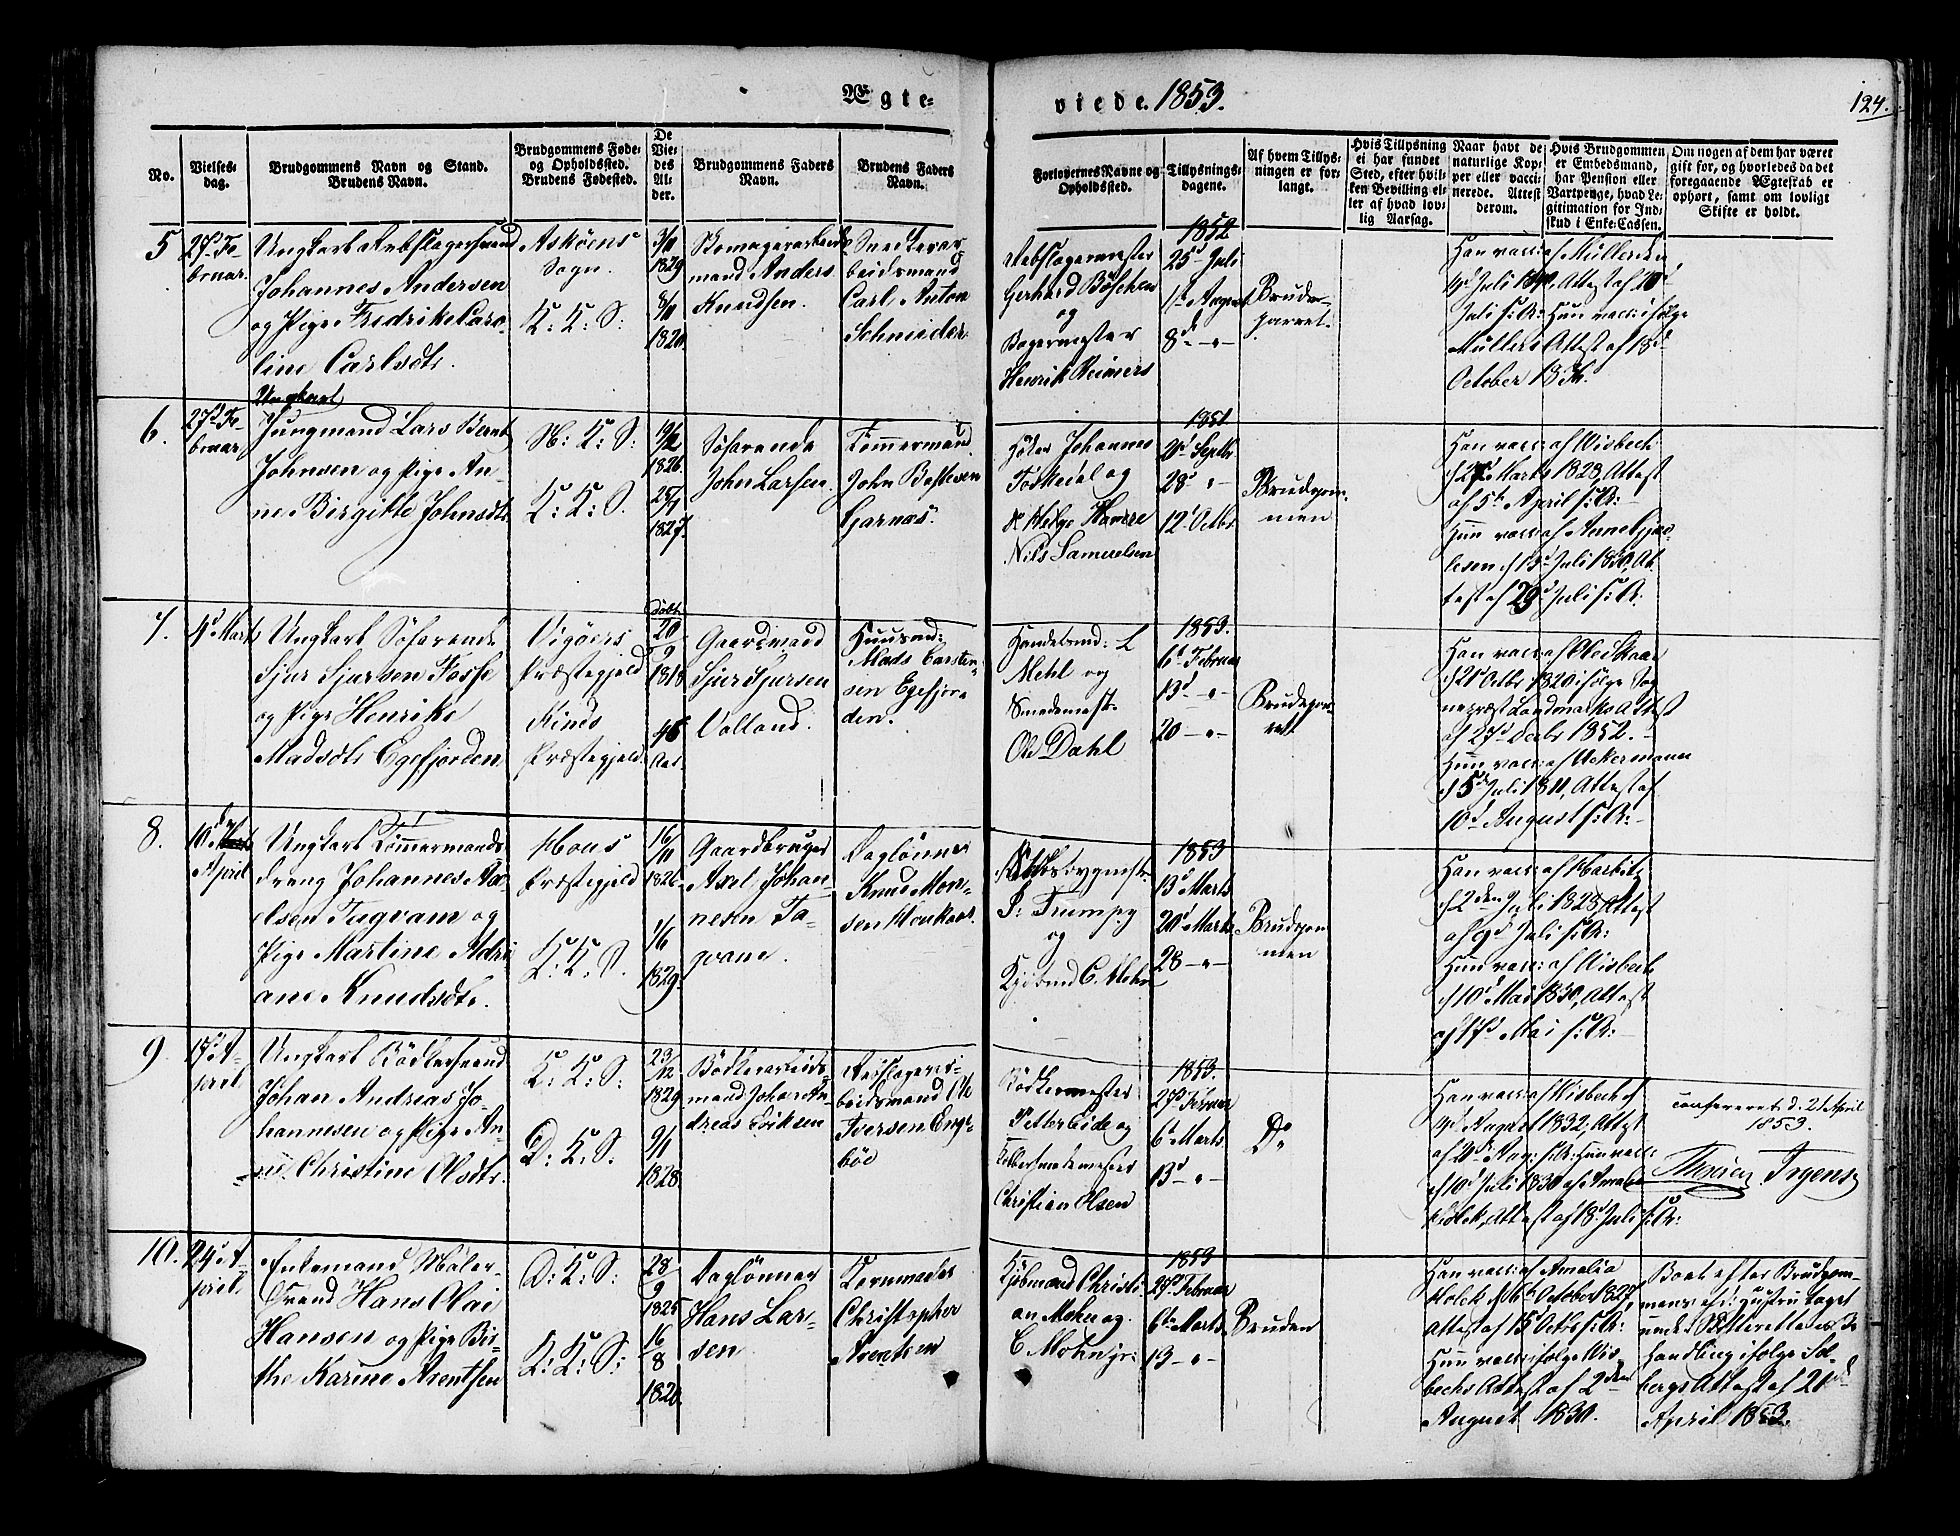 Ægte-
viede. 1853.
124.
No.
Vielses-
dag.
Brudgommens Navn og Stand.
Brudens Navn.
Brudgommens Føde-
og Opholdssted.
Brudens Fødested.
De
Vie-
des
Al-
der.
Brudgommens Faders
Navn.
Brudens Faders
Navn.
Forlovernes Navne og
Opholdssted.
Tillysnings-
dagene.
Af hvem Tillys-
ningen er for-
langt.
Hvis Tillysning
ei har fundet
Sted, efter hvil-
ken Bevilling el-
ler af hvad lov-
lig Aarsag.
Naar havt de
naturlige Kop-
per eller vacci-
nerede. Attest
derom.
Hvis Brudgommen
er Embedsmand,
har Pension eller
Vartpenge, hvad Le-
gitimation for Ind-
skud i Enke-Cassen.
Om nogen af dem har været
gift før, og hvorledes da det
foregaaende Ægteskab er
ophørt, samt om lovligt
Skifte er holdt.
5
27d Fe-
bruar
Ungkarl Rebslagersvend
Johannes Andersen
og Pige Fredrike Caro-
line Carlsdtr.
Askøens
Sogn.
K: K: S:
1829
8/11
Skomagerarbeids-
mand Anders
Knudsen.
beidsmand
Carl Anton
Schneider
Rebslagermester
Gerhard Böschen
og
Bagermester
Henrik Reimers
1852
25d Juli
1d August
8d -"-
Brude-
parret.
Han vacc: af Müller den
Juli s: A: Hun vacc: ifølge
Müllers Attest af 18d
October
6.
27d Fe-
bruar
Ungkarl
Jungmand Lars Bernt
Johnsen og Pige An-
ne Birgitte Johnsdtr.
N: K: S:
K: K: S.
19/12
1826
25/7
1827.
Søfarende
John Larsen.
Tømmermand
John
Garnæs.
Johannes
og
Nils Samuelsen
1851
Septbr
28d "
12t Octbr
Brudgom-
men
Han vacc: af Wisbech
Marts 1828, Attest
af 5te April s: A:
Hun vacc: af Anne Gjær-
lesen d 13d Juli 1830, At-
test af 29d Juli s: A:
7.
4d Marts
Ungkarl Søfarende
Sjur Sjursen Fosse
og Pige Henrike
Madsdtr Egefjorden
Vigøers
Præstegjeld
Kinds
Præstegjeld
Døbt
20
9
1818
Aar.
Gaardmand
Sjur Sjursen
Volland.
Huusmd:
Mads Carsten-
sen Egefjor-
den.
Handelsmd: L
Mehl og
Smedemestr
Ole Dahl
1853.
6d Februar
13d -"-
20 -"-
Brudepar-
ret
Han vacc: af Ole Skaar
d 21 Octbr 1820 ifølge Sog-
nepræst Landmarks Attest
af 27d Decbr 1852.
Hun vacc: af Ackermann
d 5d Juli 1811, Attest af
10d August s: A:
8.
10d
April
Ungkarl Tømmermands-
dreng Johannes Ax-
elsen Tugvam og
Pige Martine Adri-
ane Knudsdtr.
Hous
Præstegjeld
K: K: S.
16/11
1826
1/6
1829.
Gaardbruger
Axel Johan-
nesen Ta-
gvam.
Daglønner
Knud Mon-
sen
P: Trumpy
og
Kjøbmd C. Mohr
1853
13d Marts
20d Marts
28 -"-
Brudgom-
men
Han vacc: af Harbitz
d 2den Juli 1828, Attest
af 9d Juli s: A:
Hun vacc: af Wisbech
d 10d Mai 1830, Attest
af 17d Mai s: A:
9
17d A-
pril
Ungkarl Bødkersvend
Johan Andreas Jo-
hannesen og Pige An-
ne Christine Olsdtr.
K: K: S:
D: K: S:
23/12
1829
9/1
1828.
Bødkerarbeids-
mand Johan An-
dreas Eriksen
beidsmand Ole
Iversen Enge-
böe
Bødkermester
Petter Eide og
Christian Olsen
1853.
27d Februar
6d Marts
13d -"-
Do
Han vacc: af Wisbech af
4d August 1832, Attest
af 20d Aug: s: A: Hun vacc:
d 10d Juli 1830 af Amalie
Holck, Attest af 18d Juli s: A:
Confereret d. 21 April
1853.
Irgens
10.
24d A-
pril
Enkemand Maler-
svend Hans Olai
Hansen og Pige Bir-
the Karine Arentsen
D: K: S:
K: K: S:
28
9
1825
16
8
1828.
Daglønner
Hans Lar-
sen
Kornmaaler
Christopher
Arentsen
Kjøbmand Christi-
an Mohn og
C. Mohn jr:
1853
27d Februar
6te Marts
13 -"-
Bruden
Han vacc: af Amalia
Holck d 16d October 1827,
Attest af 15d Octbr s: A:
Hun vacc: ifølge Wis-
bechs Attest af 2den
August 1830.
Boet efter Brudgom-
mens afd: Hustru taget
under Skifterettens Be-
handling ifølge Sol-
bergs Attest af 21de
April 1853.